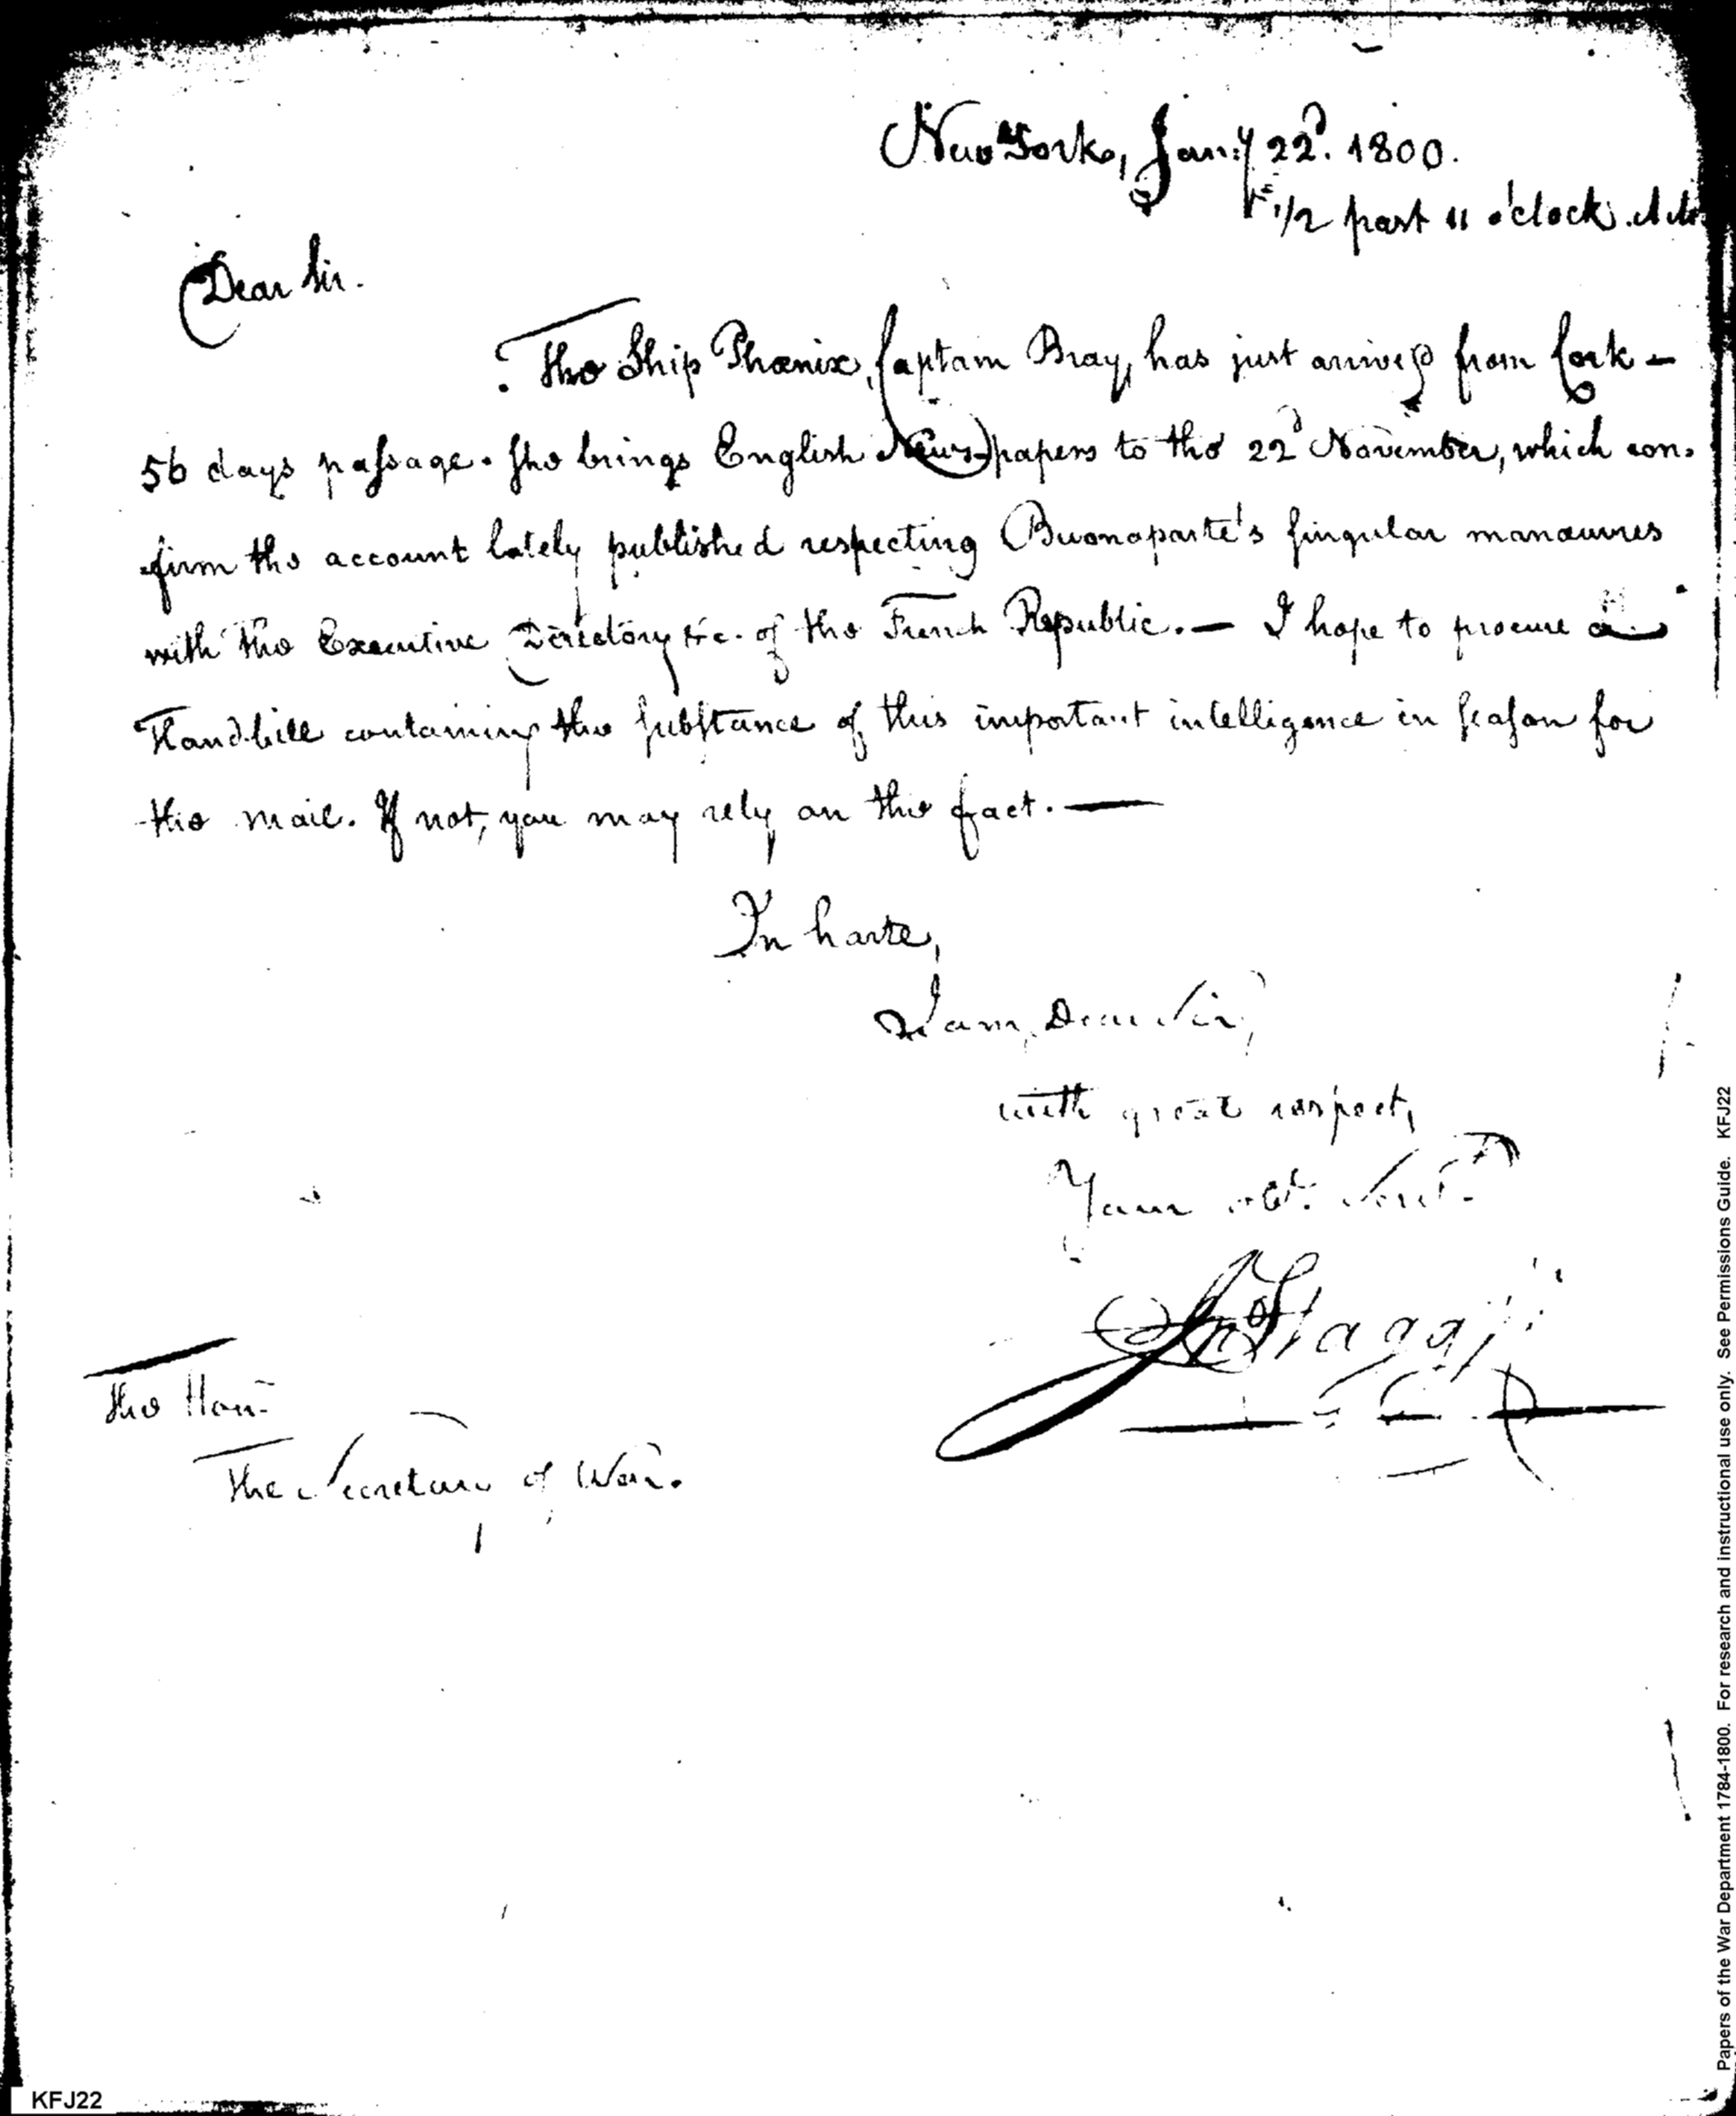 New York, Jan:y 22d. 1800.
1/2 past 11 o'clock. A.M.
Dear Sir.
The Ship Phœnix, Captain Bray, has just arrived from Cork –
56 days passage. She brings English News-papers to the 22d November, which con-
firm the account lately published respecting Buonaparte's singular manœuvres
with the Executive Directory &c. of the French Republic. — I hope to procure a
Handbill containing the substance of this important intelligence in season for
the mail. If not, you may rely on the fact. —
In haste,
I am, Dear Sir,
with great respect,
Your obt. Servt.
Jno Stagg jr
The Hon:
The Secretary of War.
KFJ22
Papers of the War Department 1784-1800. For research and instructional use only. See Permissions Guide. KFJ22